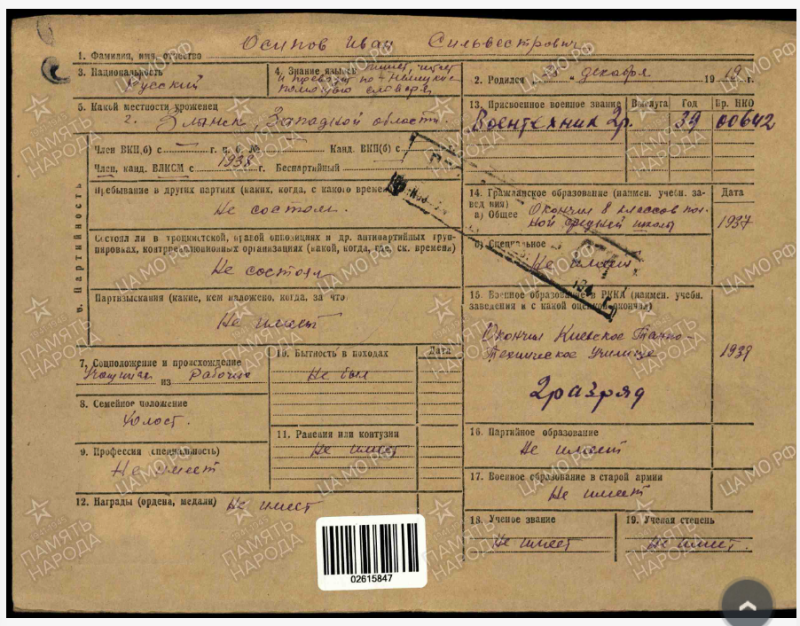 Осипов Иван Сильвестрович
1. Фамилия, имя, отчество
3. Национальность
Русский
4. Знание языков пишет, читет
и переводит по-немецки с
помощью словаря
2. Родился " декабря 1919 г.
5. Какой местности уроженец
г. Злянск, Западной области.
13. Присвоенное военное звание Выслуга Год Пр. НКО
Воентехник 2р. 39 00642
6. Партийность
Член ВКП(б) с г. п. б. № Канд. ВКП(б) с
Член, канд. ВЛКСМ с 1938 г. Беспартийный
Пребывание в других партиях (каких, когда, с какого времени
Не состоял.
Состоял ли в троцкистской, правой оппозиции и др. антипартийных груп-
пировках, контрреволюционных организациях (какой, когда, где, ск. времени)
Не состоял
Партвзыскания (какие, кем наложено, когда, за что
Не имеет
14. Гражданское образование (наимен. учебн. за-
ведения) Дата
а) Общее Окончил 8 классов пол-
ной средней школы 1937
б) Специальное
Не имеет
194
15. Военное образование в РККА (наимен. учебн.
заведения и с какой оценкой окончил)
Окончил Киевское Танко-
Техническое Училище 1939
2 разряд
7. Соцположение и происхождение
Учащийся из Рабочих
8. Семейное положение
Холост.
9. Профессия (специальность)
Не имеет
10. Бытность в походах Дата
Не был
11. Ранения или контузии
Не имеет
16. Партийное образование
Не имеет
17. Военное образование в старой армии
Не имеет
12. Награды (ордена, медали) Не имеет
18. Ученое звание
Не имеет
19. Ученая степень
Не имеет.
02615847
ПАМЯТЬ НАРОДА
ЦА МО РФ